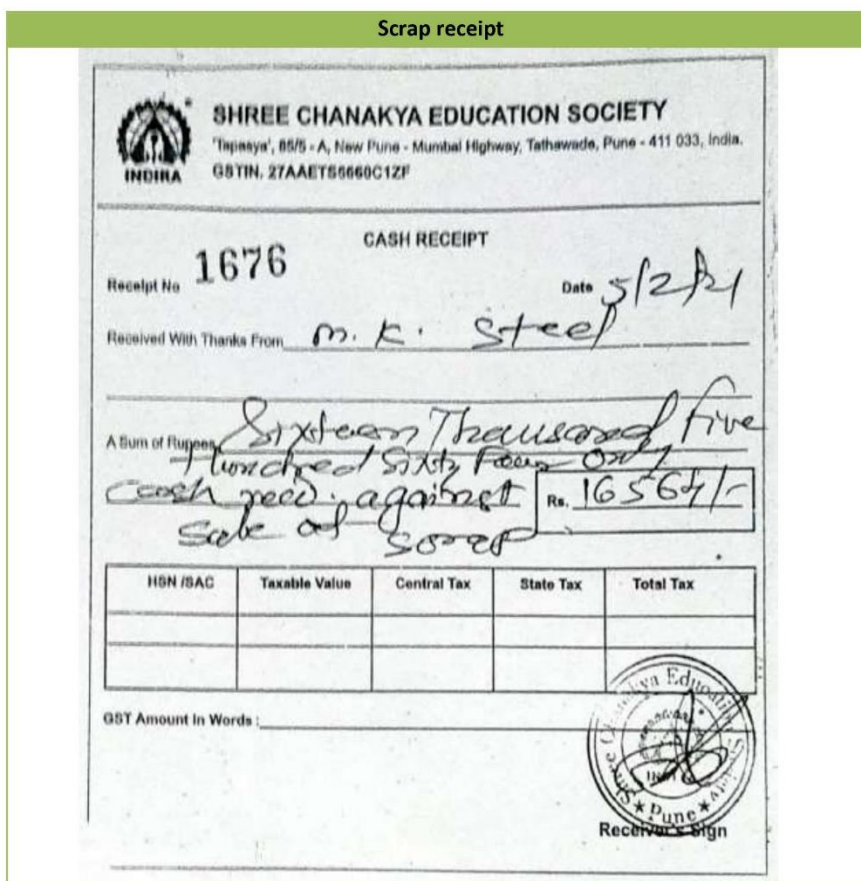 Scrap receipt
INDIRA
SHREE CHANAKYA EDUCATION SOCIETY
'Tapasya', 85/5 - A, New Pune - Mumbai Highway, Tathawade, Pune - 411 033, India.
GSTIN. 27AAETS6660C1ZF
CASH RECEIPT
Receipt No 1676
Date 5/2/21
Received With Thanks From M. K. Steel
A Sum of Rupees Sixteen Thousand Five
Hundred Sixty Four Only
Cash recd. against
Rs. 16564/-
Sale of Scrap
HSN /SAC Taxable Value Central Tax State Tax Total Tax
GST Amount In Words :
Shree Chanakya Education Society
★ Pune ★
Receiver's Sign